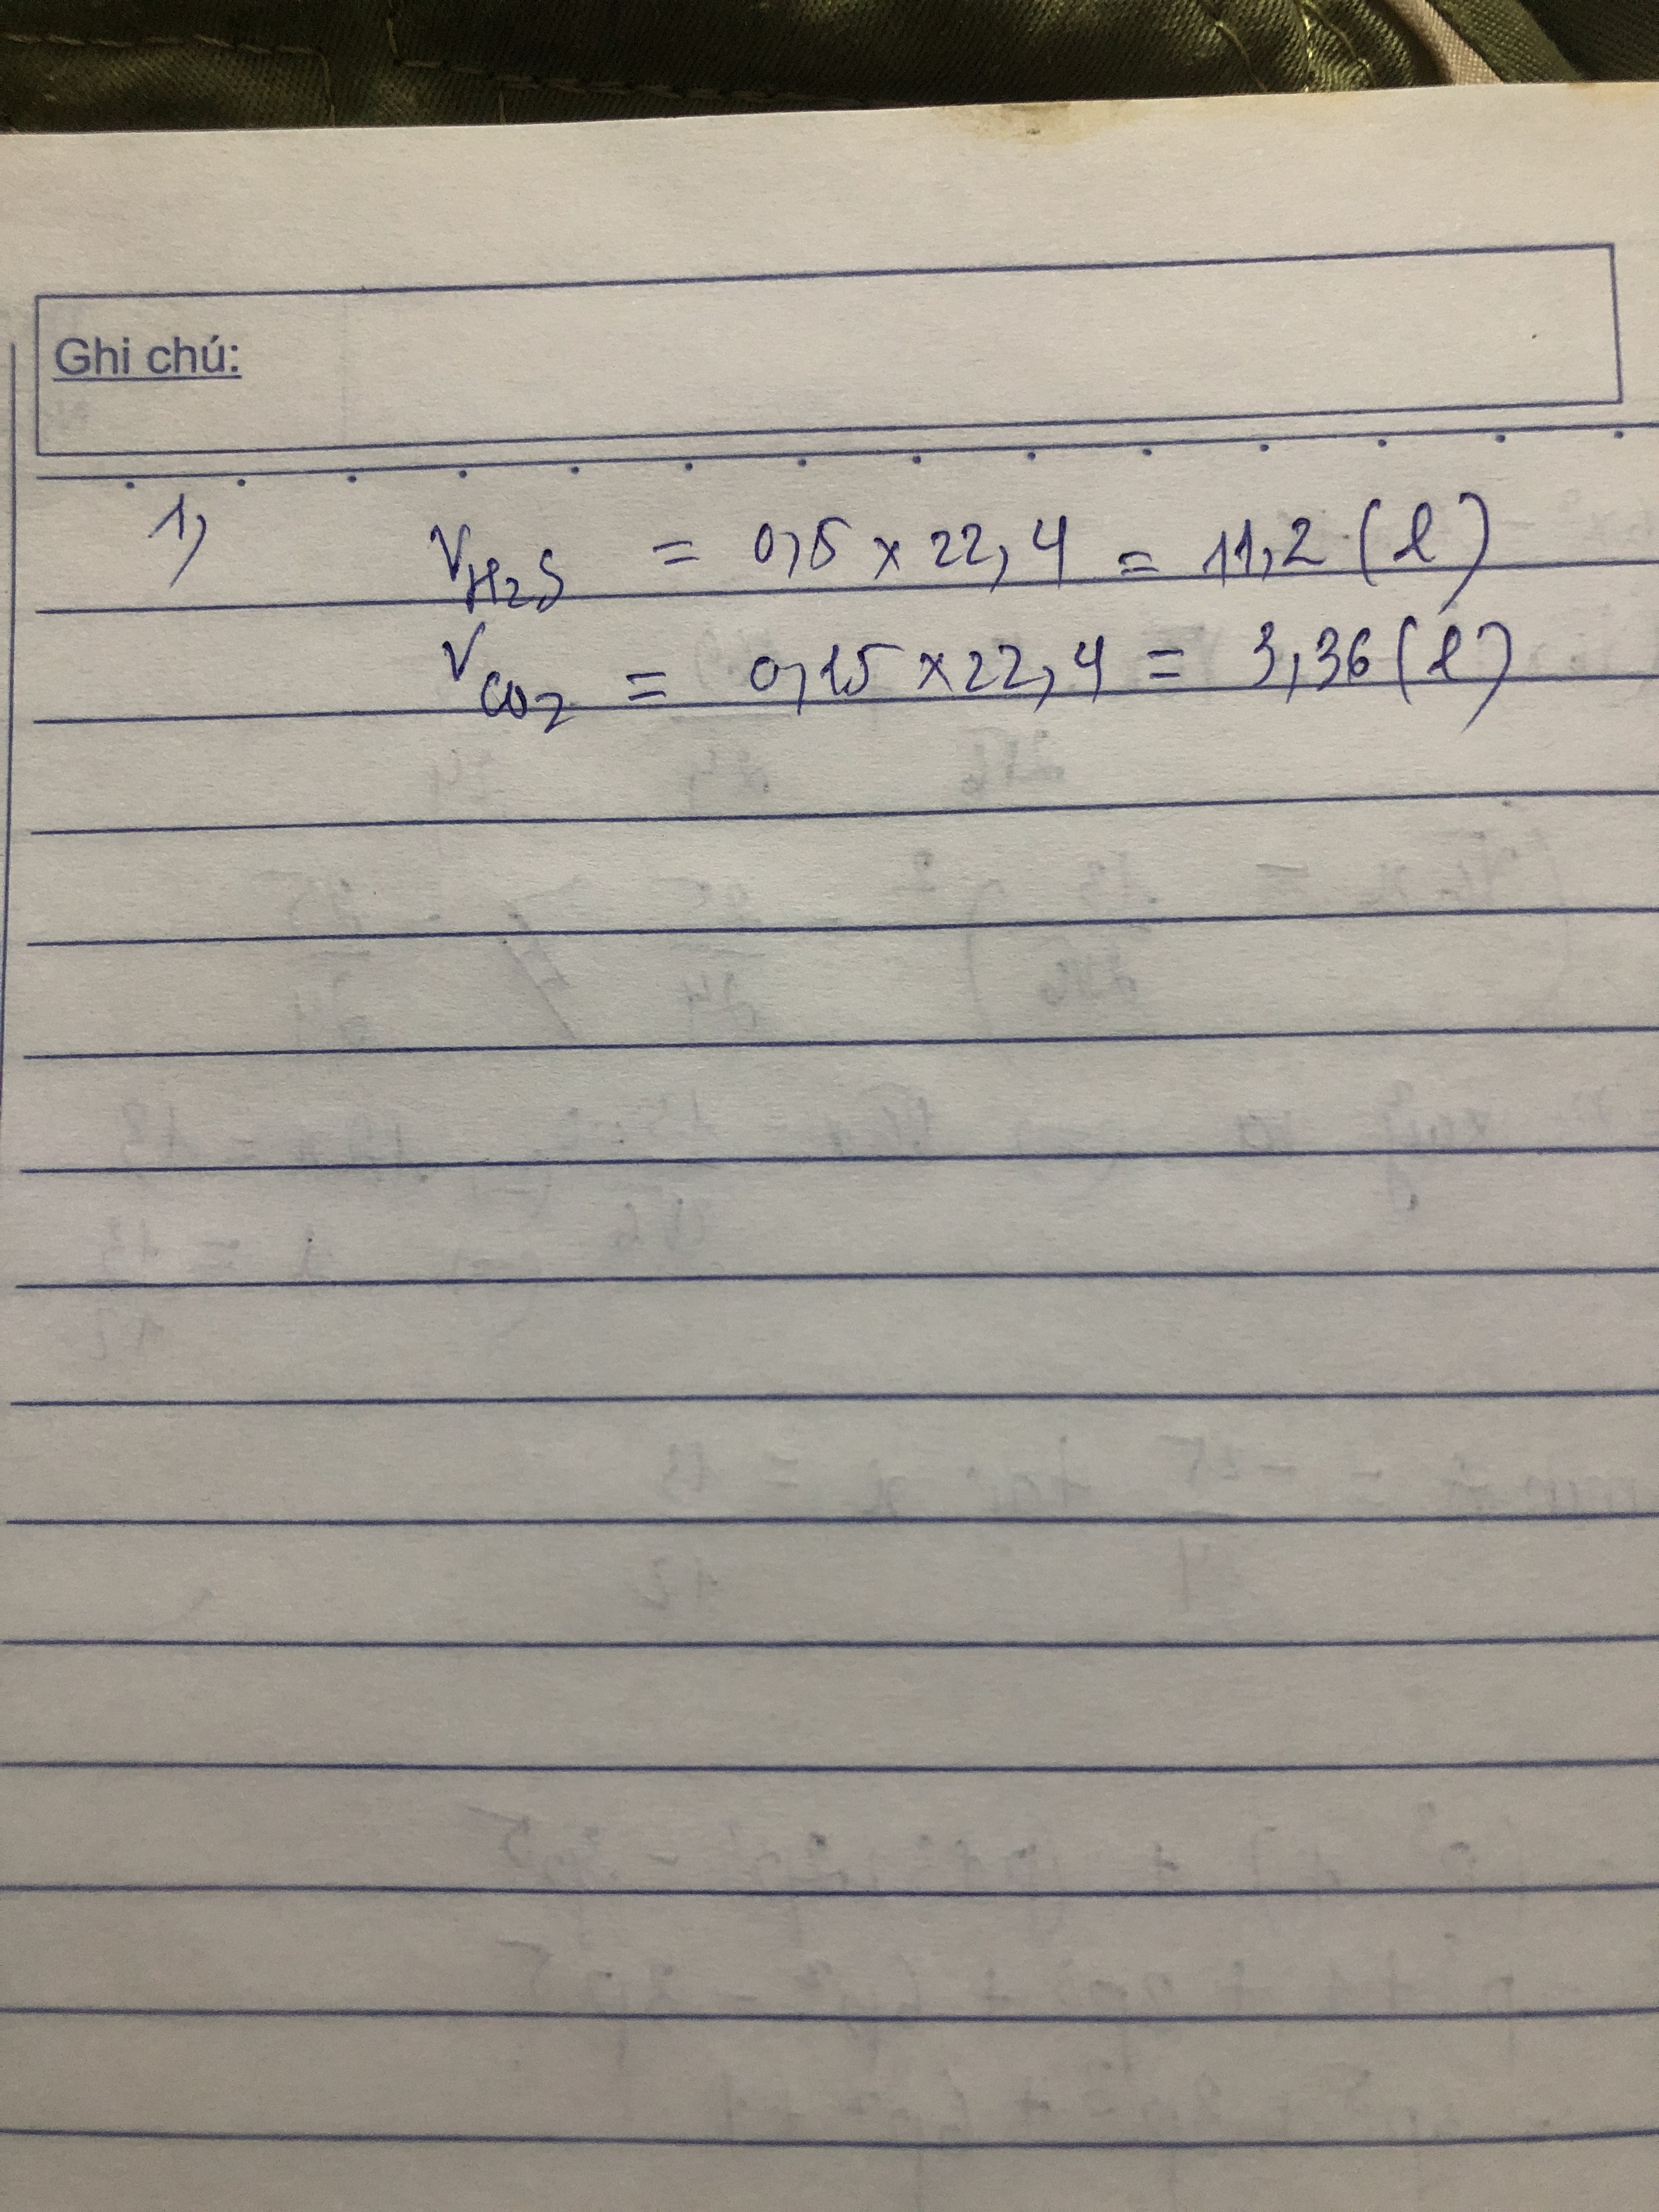 Ghi chú:
1, V H2S = 0,5 x 22,4 = 11,2 (l)
V CO2 = 0,15 x 22,4 = 3,36 (l)